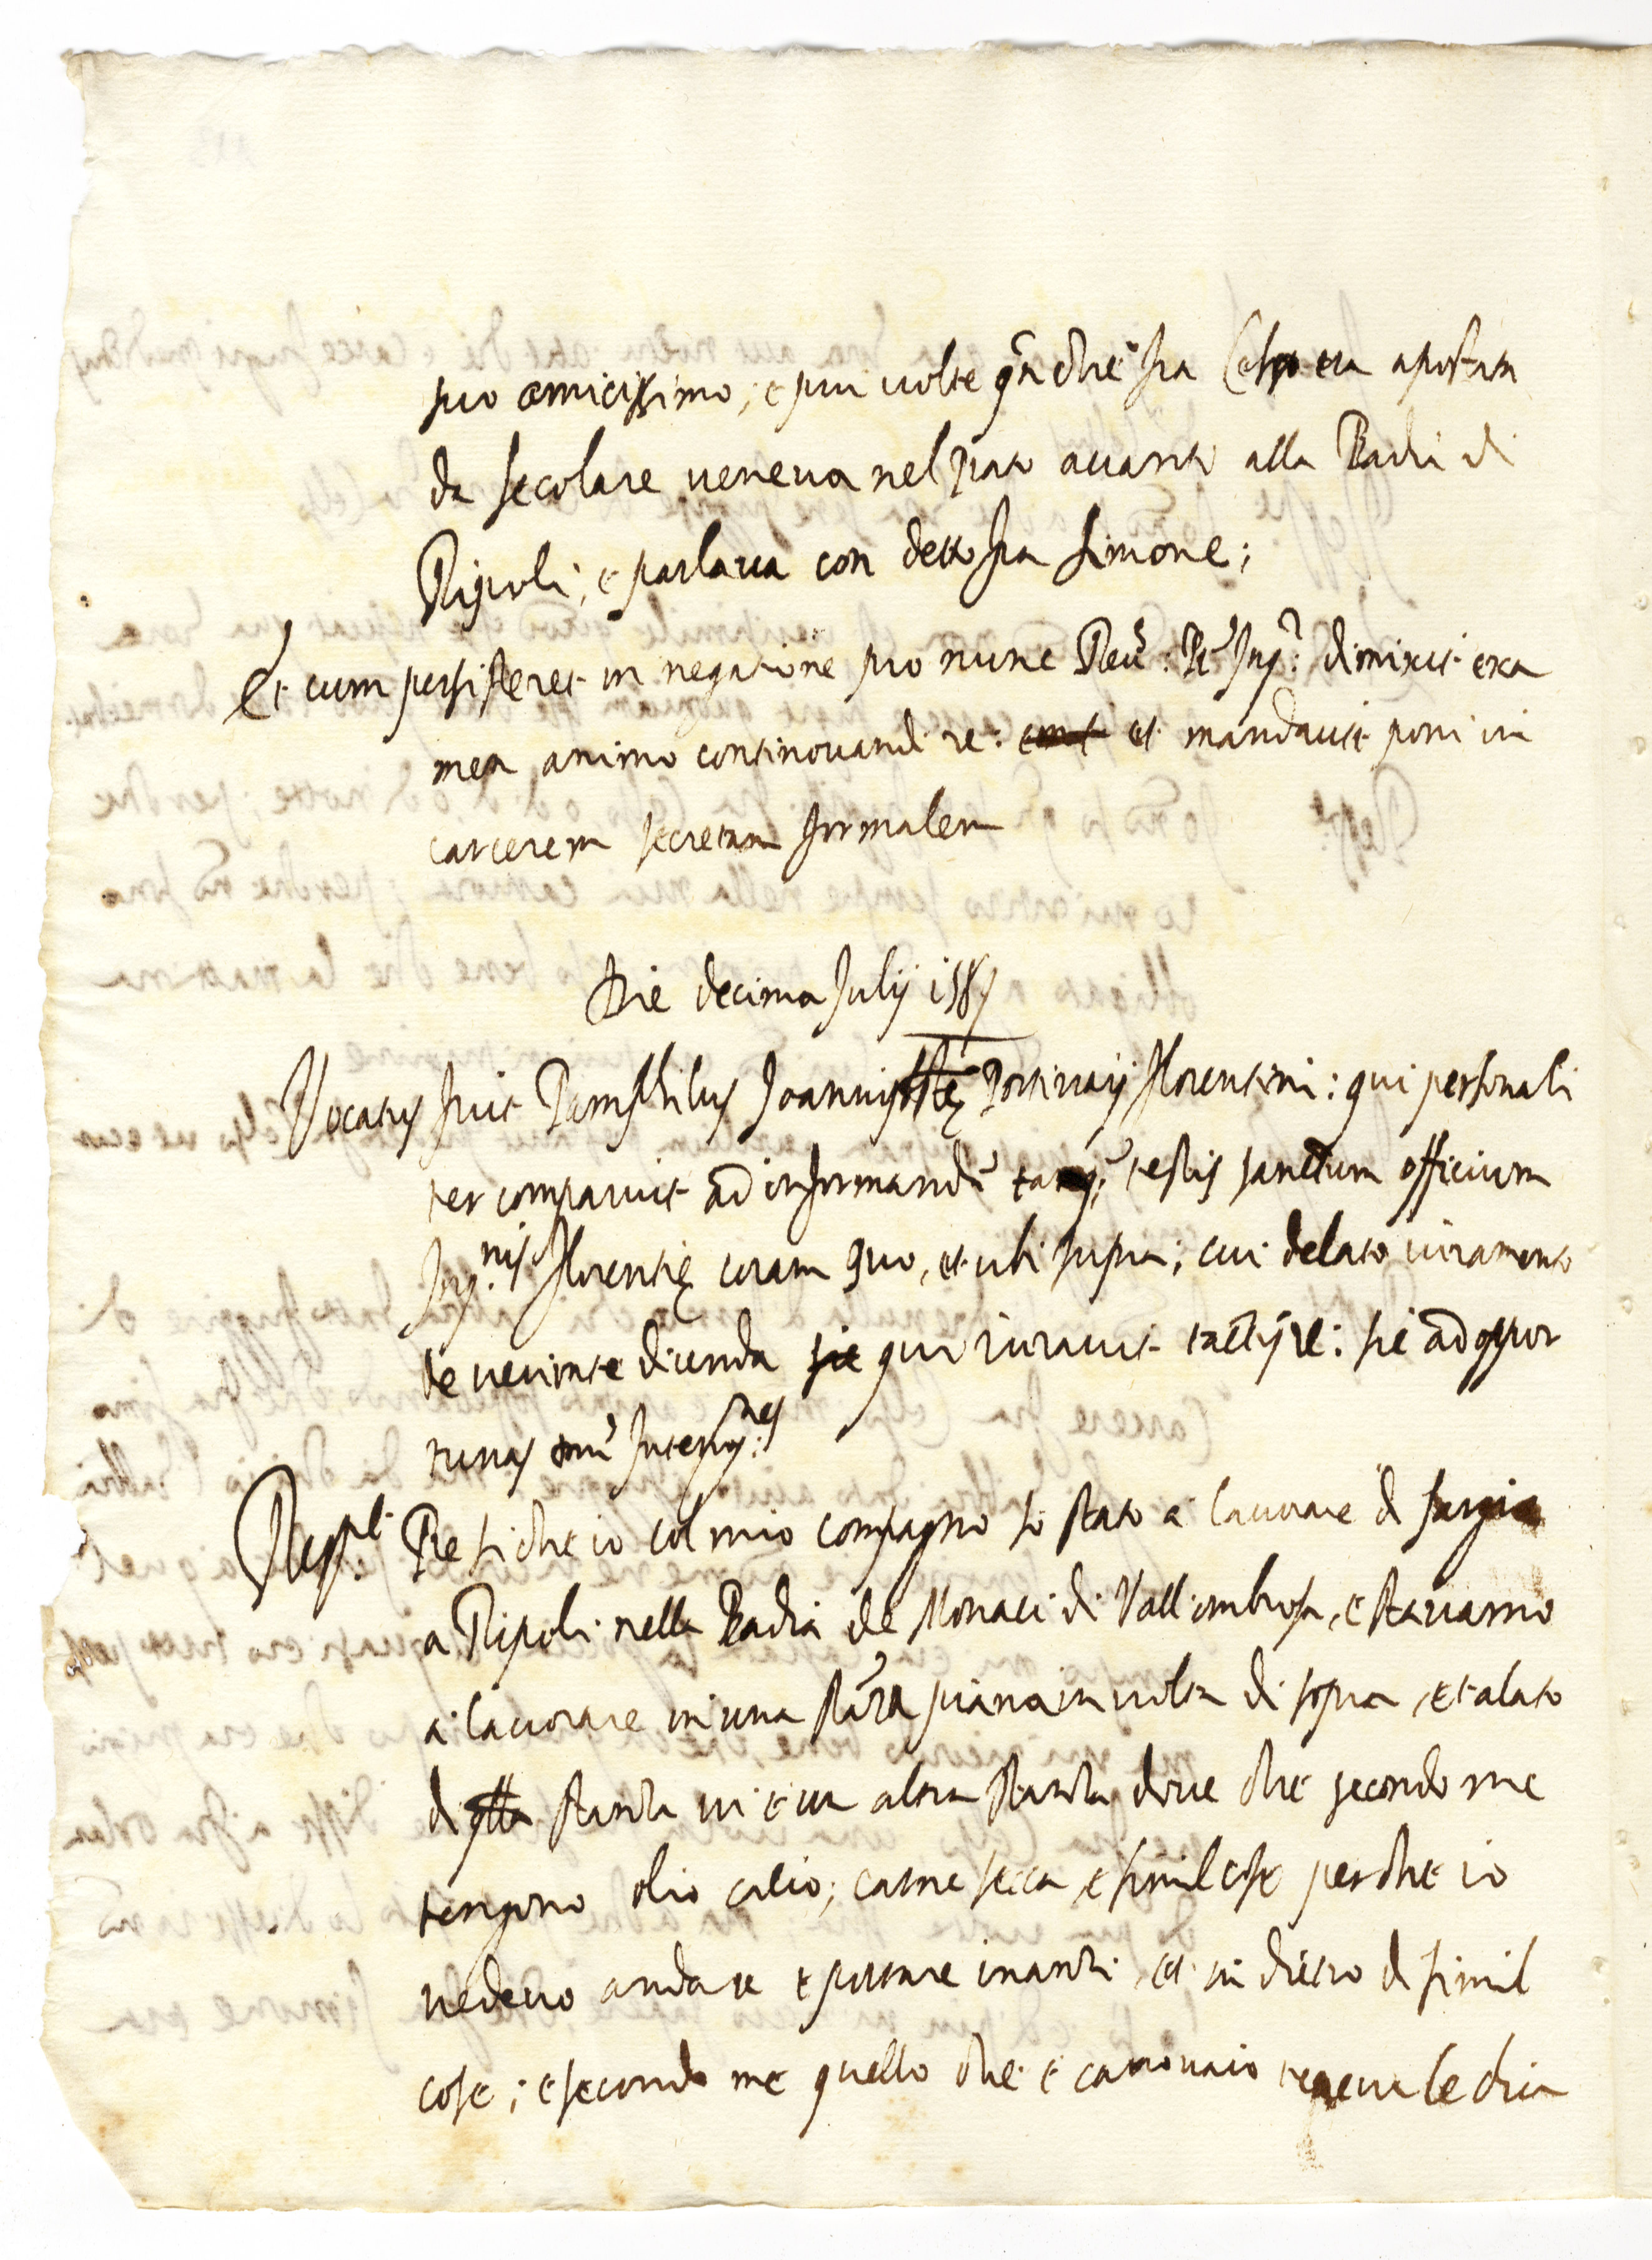 suo amicissimo; e piu uolte qñ che fra Celso era apostata
da secolare ueneua nel prato auanti alla Badia di
Ripoli; e parlaua con detto fra Simone;
Et cum persisteret in negatione pro nunc Reu.ᵈ: P. Inq.ʳ: dimixit exa
men animo continouandi re: et mandauit poni in
carcerem secretam formalem
Die decima Julij 1587
Vocatus fuit Pamphilus Joannisbtę Portinarij florentini: qui personali
ter comparuit ad informandū tanq̃; testis sanctum officium
Inq.nis florentię coram quo, et ubi supra; cui delato iuramento
de ueritate dicenda qui iurauit tactis re: sic ad oppor
tunas Interog.nes
Resp.t Re si che io col mio compagno so stato a lauorare di
a Ripoli nella Badia de Monaci di Vall'ombrosa, e stauamo
a lauorare in una stāza piana in uolta di sopra, et alato
di q̃lla stantia ui era altra stantia doue che secondo me
tengono olio cacio; carne secca, e simil cose perche io
uedeuo andare e portare inanti, et in dietro di simil
cose; e secondo me quello che è camonaio teneua le chia